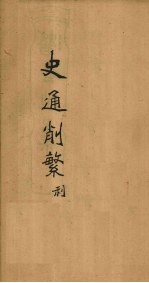 史通削繁 利